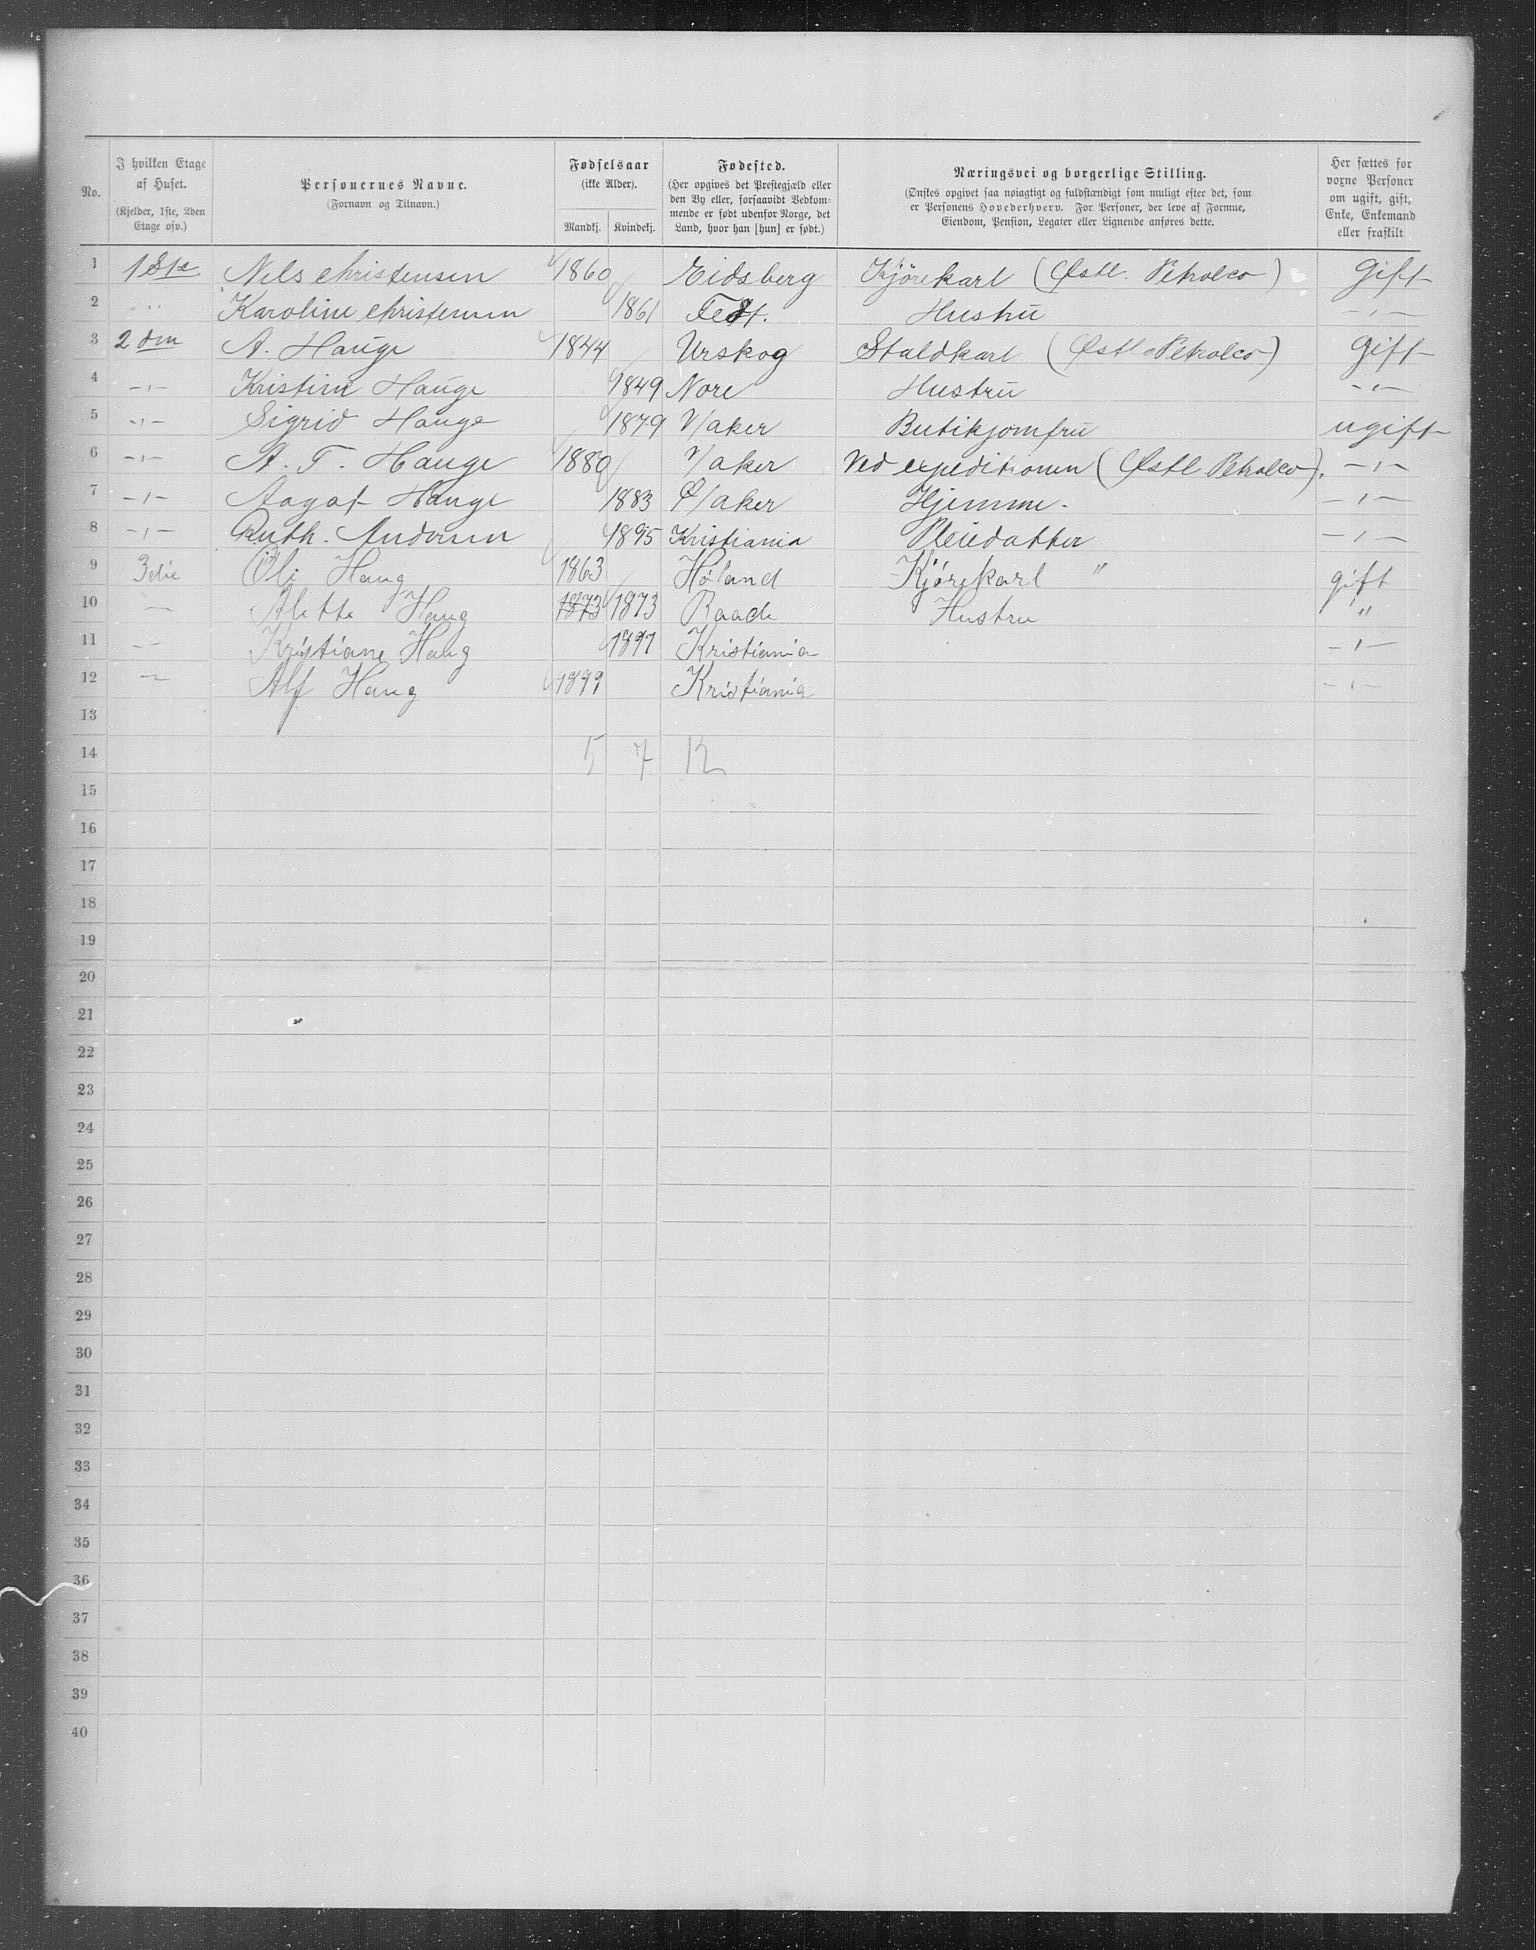 No. | I hvilken Etage af Huset. (Kjelder, 1ste, 2den Etage osv.) | Personernes Navne. (Fornavn og Tilnavn.) | Fødselsaar (ikke Alder). Mandkj. | Kvindekj. | Fødested. (Her opgives det Prestegjæld eller den By eller, forsaavidt Vedkommende er født udenfor Norge, det Land, hvor han [hun] er født.) | Næringsvei og borgerlige Stilling. (Ønskes opgivet saa nøiagtigt og fuldstændigt som muligt efter det, som er Personens Hovederhverv. For Personer, der leve af Formue, Eiendom, Pension, Legater eller Lignende anføres dette. | Her sættes for voxne Personer om ugift, gift, Enke, Enkemand eller fraskilt
1 | 1ste | Nels Christensen | 1860 | | Eidsberg | Kjørekarl (Østl. Petrolco) | Gift
2 | " | Karoline Christensen | | 1861 | Fedt. | Hustru | -"-
3 | 2den | A. Hauge | 1844 | | Urskog | Staldkarl (Østl. Petrolco) | Gift
4 | -"- | Kristine Hauge | | 1849 | Nore | Hustru | -"-
5 | -"- | Sigrid Hauge | | 1879 | V/aker | Butikjomfru | ugift
6 | -"- | A. T. Hauge | 1880 | | V/aker | Ved expeditionen (Østl. Petrolco). | -"-
7 | -"- | Aagot Hauge | | 1883 | Ø/aker | Hjemme. | -"-
8 | -"- | Ruth. Andersen | | 1895 | Kristiania | Pleiedatter | -"-
9 | 3die | Ole Haug | 1863 | | Høland | Kjørekarl " | gift
10 | — | Alette Haug | 1873 | 1873 | Raade | Hustru | "
11 | — | Kristiane Haug | | 1897 | Kristiania | | -"-
12 | — | Alf Haug | 1899 | | Kristiania | | -"-
13
14 | | | 5 | 7 | 12
15
16
17
18
19
20
21
22
23
24
25
26
27
28
29
30
31
32
33
34
35
36
37
38
39
40